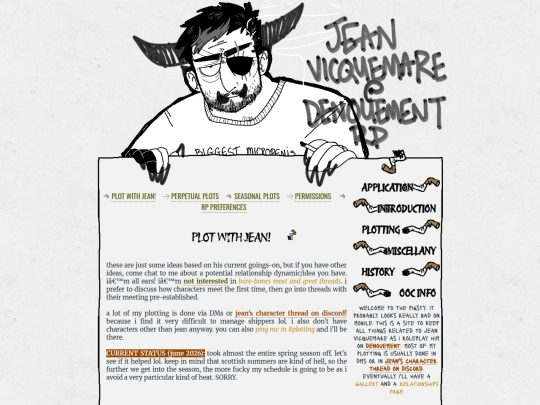 JEAN
VICQUEMARE
@
DENOUEMENT
RP
BIGGEST MICROPENIS
PLOT WITH JEAN! PERPETUAL PLOTS SEASONAL PLOTS PERMISSIONS
RP PREFERENCES
PLOT WITH JEAN!
these are just some ideas based on his current goings-on, but if you have other
ideas, come chat to me about a potential relationship dynamic/idea you have.
iâ€™m all ears! iâ€™m not interested in bare-bones meet and greet threads. i
prefer to discuss how characters meet the first time, then go into threads with
their meeting pre-established.
a lot of my plotting is done via DMs or jean's character thread on discord!
because i find it very difficult to manage shippers lol. i also don't have
characters other than jean anyway. you can also ping me in #plotting and i'll be
there.
CURRENT STATUS (june 2026): took almost the entire spring season off. let's
see if it helped lol. keep in mind that scottish summers are kind of hell, so the
further we get into the season, the more fucky my schedule is going to be as i
avoid a very particular kind of heat. SORRY.
APPLICATION
INTRODUCTION
PLOTTING
MISCELLANY
HISTORY
OOC INFO
WELCOME TO THE PIGSTY. IT
PROBABLY LOOKS REALLY BAD ON
MOBILE. THIS IS A SITE TO KEEP
ALL THINGS RELATED TO JEAN
VICQUEMARE AS I ROLEPLAY HIM
ON DENOUEMENT. MOST OF MY
PLOTTING IS USUALLY DONE IN
DMS OR IN JEAN'S CHARACTER
THREAD ON DISCORD.
EVENTUALLY I'LL HAVE A
GALLERY AND A RELATIONSHIPS
PAGE.